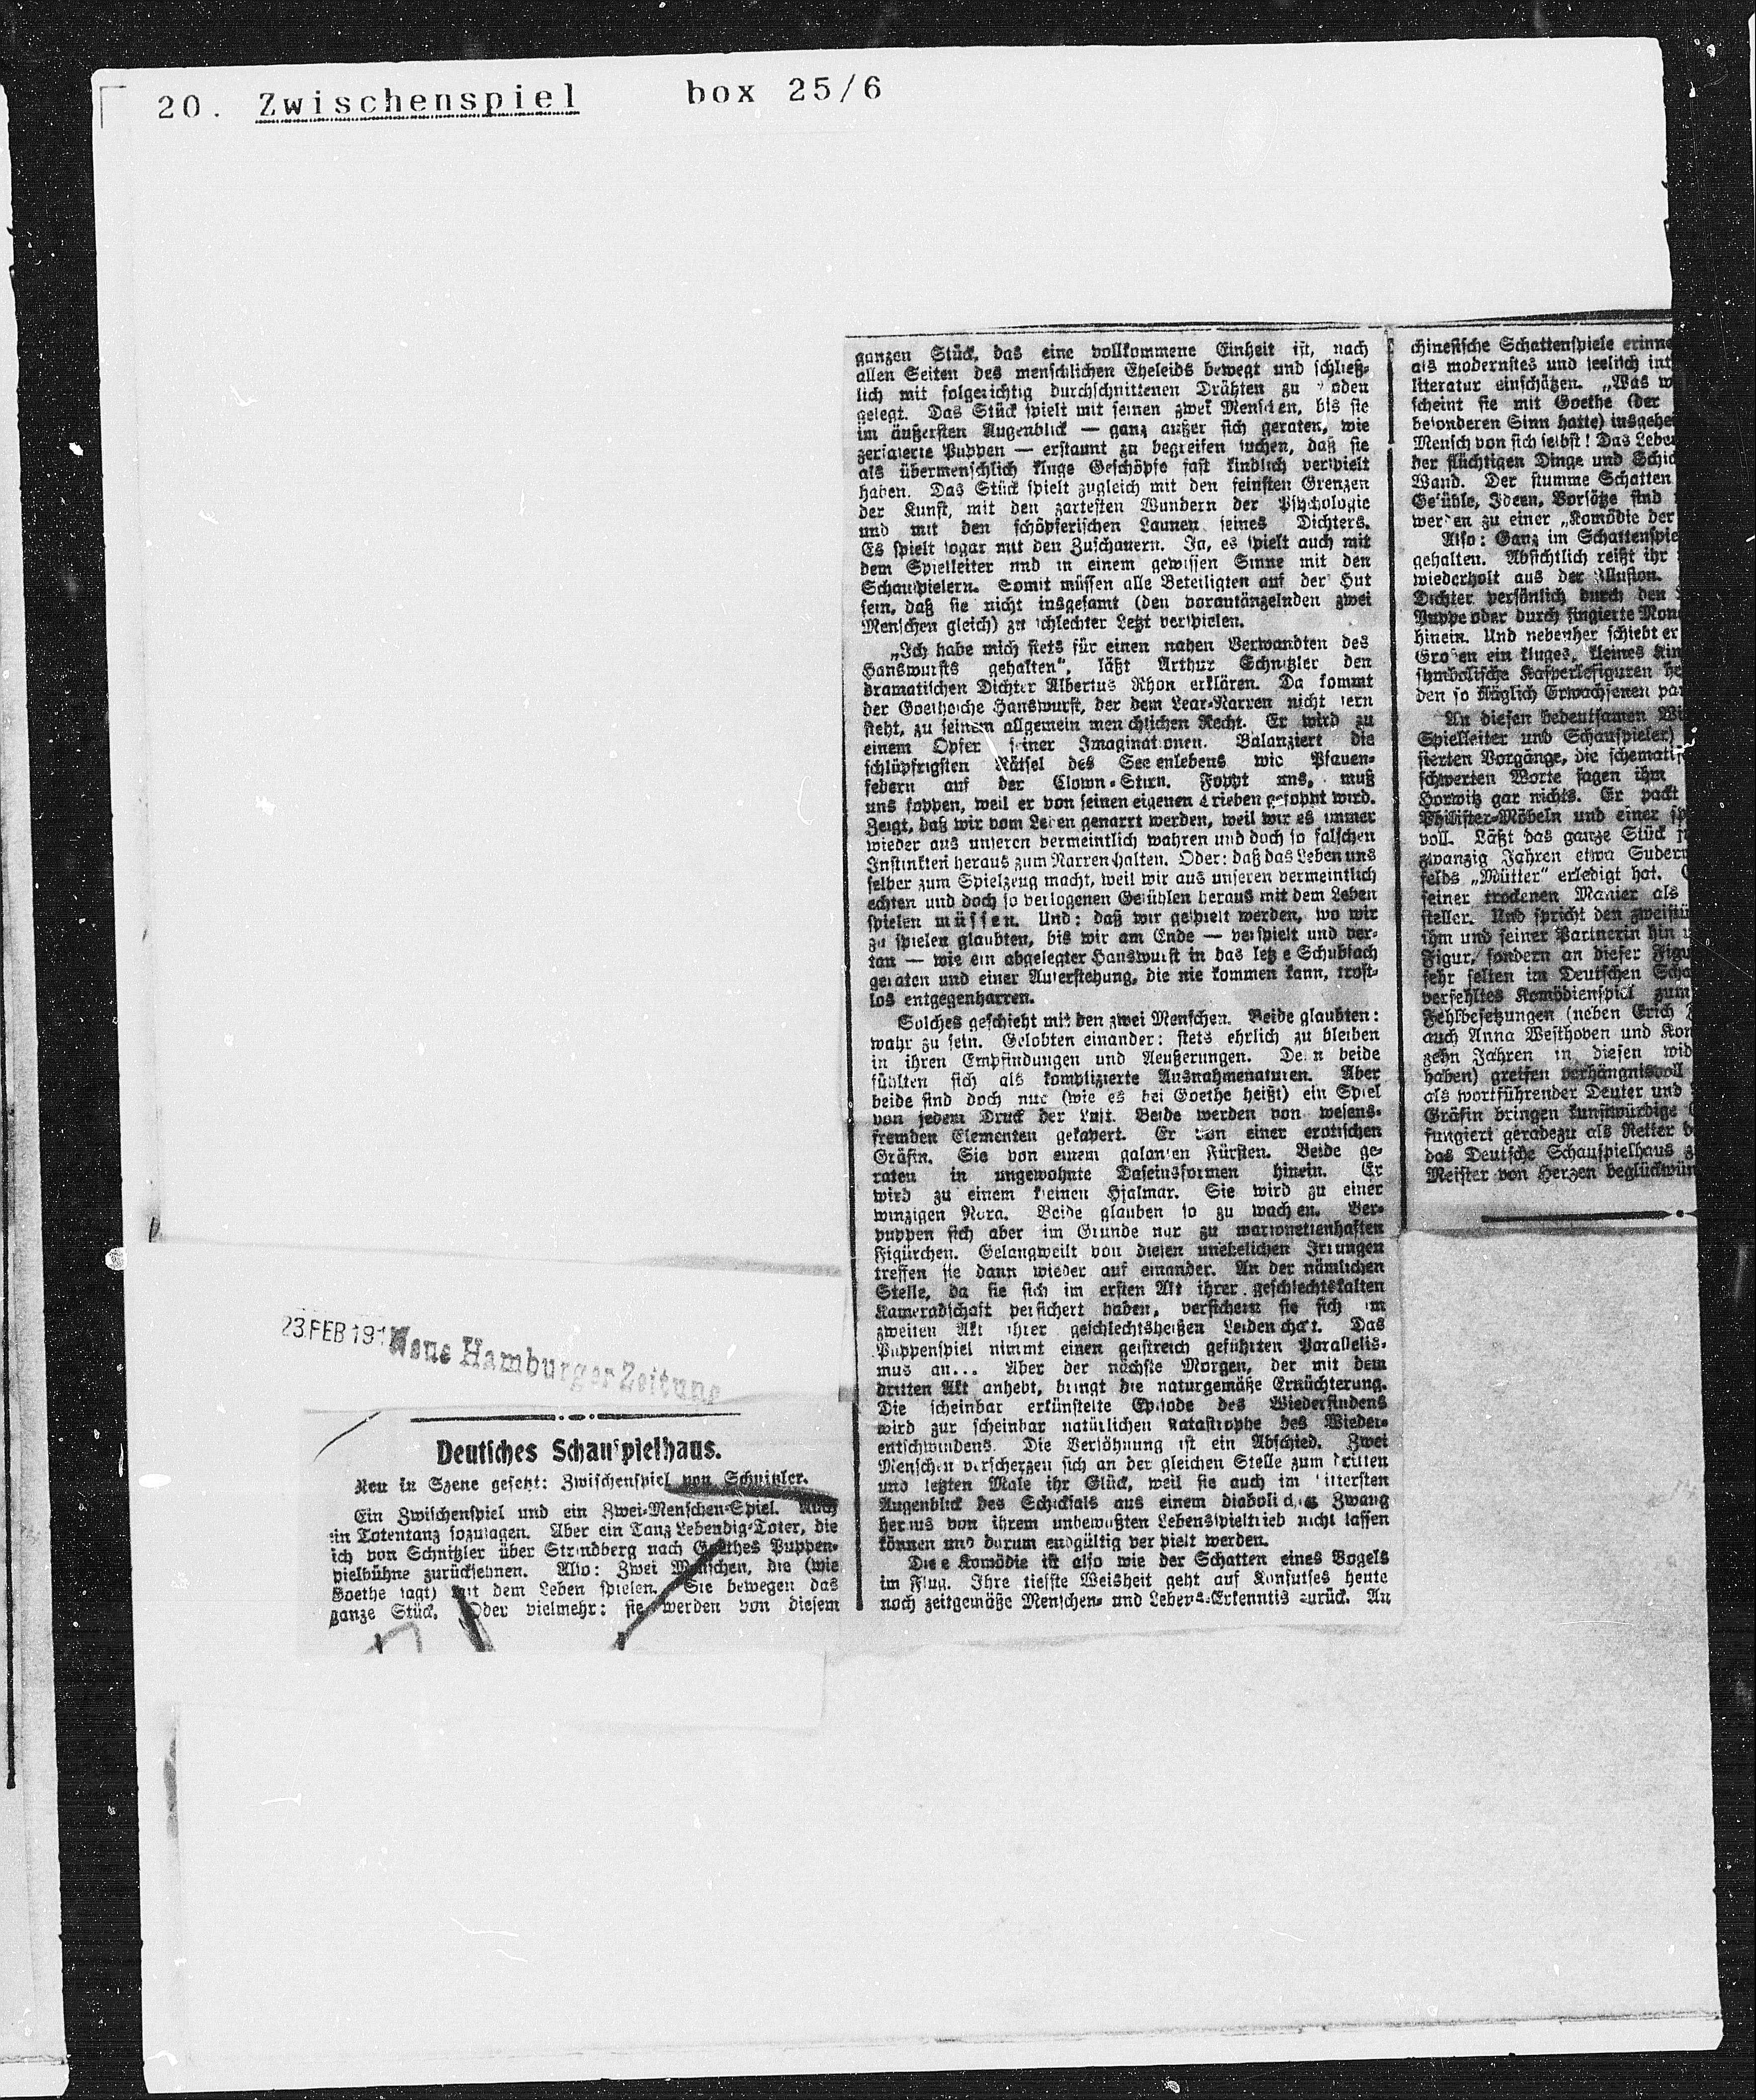 20. Zwischenspiel box 25/6
23. FEB 191
Neue Hamburger Zeitung
Deutsches Schauspielhaus.
Neu in Szene gesetzt: Zwischenspiel von Schnitzler.
Ein Zwischenspiel und ein Zwei-Menschen-Spiel. Auch
ein Totentanz sozusagen. Aber ein Tanz Lebendig-Toter, die
ich von Schnitzler über Strindberg nach Goethes Puppen-
pielbühne zurücksehnen. Also: Zwei Menschen, die (wie
Goethe sagt) mit dem Leben spielen. Sie bewegen das
ganze Stück. Oder vielmehr: sie werden von diesem
ganzen Stück, das eine vollkommene Einheit ist, nach
allen Seiten des menschlichen Eheleids bewegt und schließ-
lich mit folgerichtig durchschnittenen Drähten zu Boden
gelegt. Das Stück spielt mit seinen zwei Menschen, bis sie
im äußersten Augenblick — ganz außer sich geraten, wie
zerfaserte Puppen — erstaunt zu begreifen suchen, daß sie
als übermenschlich kluge Geschöpfe fast kindlich verspielt
haben. Das Stück spielt zugleich mit den feinsten Grenzen
der Kunst, mit den zartesten Wundern der Psychologie
und mit den schöpferischen Launen seines Dichters.
Es spielt sogar mit den Zuschauern. Ja, es spielt auch mit
dem Spielleiter und in einem gewissen Sinne mit den
Schauspielern. Somit müssen alle Beteiligten auf der Hut
sein, daß sie nicht insgesamt (den vorantänzelnden zwei
Menschen gleich) zu schlechter Letzt verspielen.
„Ich habe mich stets für einen nahen Verwandten des
Hanswursts gehalten“, läßt Arthur Schnitzler den
dramatischen Dichter Albertus Rhon erklären. Da kommt
der Goethesche Hanswurst, der dem Lear-Narren nicht fern
steht, zu seinem allgemein menschlichen Recht. Er wird zu
einem Opfer seiner Imaginationen. Balanziert die
schlüpfrigsten Rätsel des Seelenlebens wie Pfauen-
federn auf der Clown-Stirn. Foppt uns, muß
uns foppen, weil er von seinen eigenen Trieben gefoppt wird.
Zeigt, daß wir vom Leben genarrt werden, weil wir es immer
wieder aus unseren vermeintlich wahren und doch so falschen
Instinkten heraus zum Narren halten. Oder: daß das Leben uns
selber zum Spielzeug macht, weil wir aus unseren vermeintlich
echten und doch so verlogenen Gefühlen heraus mit dem Leben
spielen müssen. Und: daß wir gespielt werden, wo wir
zu spielen glaubten, bis wir am Ende — verspielt und ver-
tan — wie ein abgelegter Hanswurst in das letzte Schubfach
geraten und einer Auferstehung, die nie kommen kann, trost-
los entgegenharren.
Solches geschieht mit den zwei Menschen. Beide glaubten:
wahr zu sein. Gelobten einander: stets ehrlich zu bleiben
in ihren Empfindungen und Aeußerungen. Denn beide
fühlten sich als komplizierte Ausnahmenaturen. Aber
beide sind doch nur (wie es bei Goethe heißt) ein Spiel
von jedem Druck der Luft. Beide werden von wesens-
fremden Elementen gekapert. Er von einer erotischen
Gräfin. Sie von einem galanten Fürsten. Beide ge-
raten in ungewohnte Daseinsformen hinein. Er
wird zu einem kleinen Hjalmar. Sie wird zu einer
winzigen Nora. Beide glauben so zu wachsen. Ver-
puppen sich aber im Grunde nur zu marionettenhaften
Figürchen. Gelangweilt von diesen unehelichen Irrungen
treffen sie dann wieder auf einander. An der nämlichen
Stelle, da sie sich im ersten Akt ihrer geschlechtskalten
Kameradschaft versichert haben, versichern sie sich im
zweiten Akt ihrer geschlechtsheißen Leidenschaft. Das
Puppenspiel nimmt einen geistreich geführten Parallelis-
mus an... Aber der nächste Morgen, der mit dem
dritten Akt anhebt, bringt die naturgemäße Ernüchterung.
Die scheinbar erkünstelte Episode des Wiederfindens
wird zur scheinbar natürlichen Katastrophe des Wieder-
entschwindens. Die Versöhnung ist ein Abschied. Zwei
Menschen verscherzen sich an der gleichen Stelle zum dritten
und letzten Male ihr Glück, weil sie auch im bittersten
Augenblick des Schicksals aus einem diabolischen Zwang
heraus von ihrem unbewußten Lebensspieltrieb nicht lassen
können und darum endgültig verspielt werden.
Diese Komödie ist also wie der Schatten eines Vogels
im Flug. Ihre tiefste Weisheit geht auf Konfutses heute
noch zeitgemäße Menschen- und Lebens-Erkenntis zurück. An
chinesische Schattenspiele erinne
als modernstes und seelisch int
literatur einschätzen. „Was w
scheint sie mit Goethe (der
besonderen Sinn hatte) insgehe
Mensch von sich selbst! Das Leben
der flüchtigen Dinge und Schic
Wand. Der stumme Schatten
Gefühle, Ideen, Vorsätze sind
werden zu einer „Komödie der
Also: Ganz im Schattenspie
gehalten. Absichtlich reißt ihr
wiederholt aus der Illusion.
Dichter persönlich durch den
Puppe oder durch fingierte Mono
hinein. Und nebenher schiebt er
Großen ein kluges, kleines Kin
symbolische Kasperlefiguren he
den so kläglich Erwachsenen pa
An diesen bedeutsamen Wi
Spielleiter und Schauspieler)
sierten Vorgänge, die schematis
schwerten Worte sagen ihm
Horwitz gar nichts. Er packt
Philister-Möbeln und einer sp
voll. Läßt das ganze Stück
zwanzig Jahren etwa Suderm
felds „Mütter“ erledigt hat.
seiner trockenen Manier als
steller. Und spricht den zweistü
ihm und seiner Partnerin hin
Figur, sondern an dieser Figu
sehr selten im Deutschen Scha
verfehltes Komödienspiel zum
Fehlbesetzungen (neben Erich
auch Anna Westhoven und Kon
zehn Jahren in diesen wid
haben) greifen verhängnisvoll
als wortführender Deuter und
Gräfin bringen kunstwürdige
fungiert geradezu als Retter
das Deutsche Schauspielhaus
Meister von Herzen beglückwün